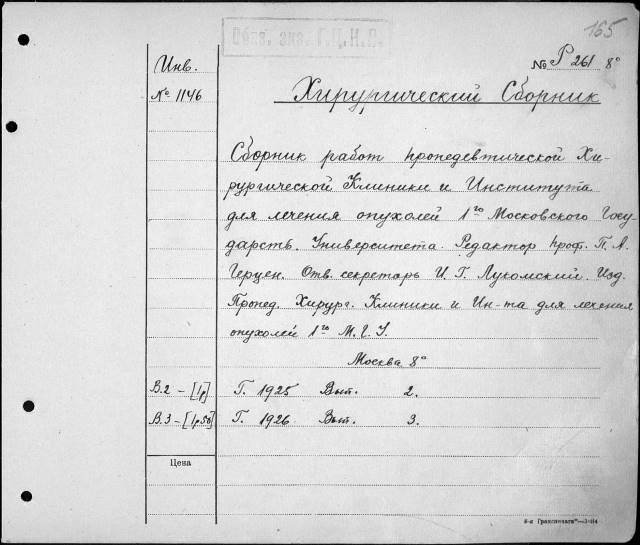 165
Обяз. экз. Г.Ц.К.П.
Инв.
№ 1146
№ Р 261 8°
Хирургический Сборник
Сборник работ пропедевтической Хи-
рургической Клиники и Института
для лечения опухолей 1го Московского Госу-
дарств. Университета. Редактор проф. П. А.
Герцен. Отв. секретарь И. Г. Лукомский. Изд.
Пропед. Хирург. Клиники и Ин-та для лечения
опухолей 1го М. Г. У.
Москва 8°
В.2 – [1р] Г. 1925 Вып. 2.
В.3 – [1р50] Г. 1926 Вып. 3.
Цена